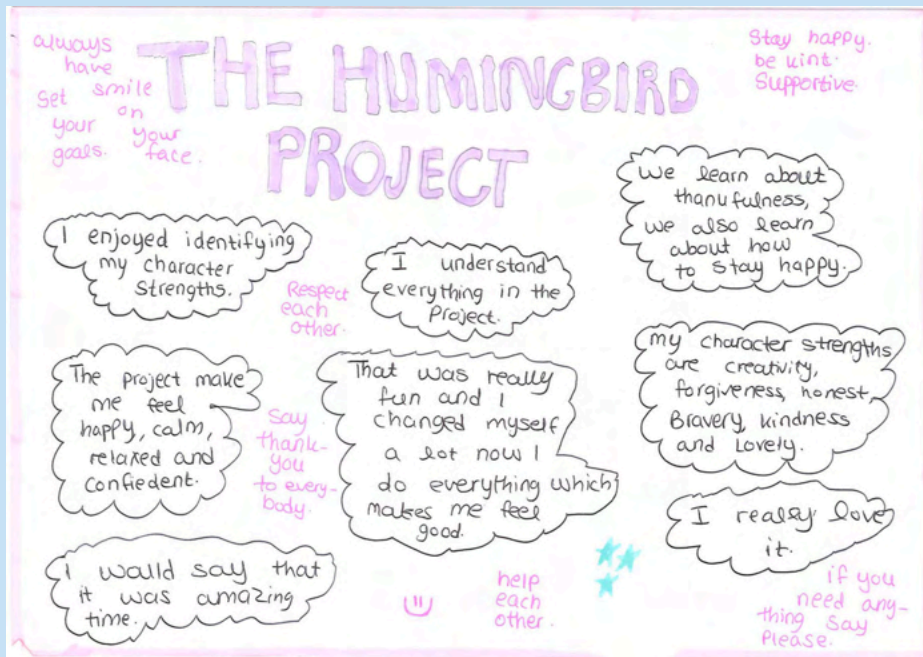 always
have
smile
on
your
face.
Set
your
goals.
THE HUMINGBIRD
PROJECT
Stay happy.
be kint.
Supportive.
I enjoyed identifying
my character
Strengths.
Respect
each
other.
I understand
everything in the
Project.
we learn about
thanufulness,
we also learn
about how
to stay happy.
The project make
me feel
happy, calm,
relaxed and
confiedent.
Say
thank-
you
to every-
body.
That was really
fun and I
changed myself
a lot now I
do everything which
makes me feel
good.
my character strengths
are creativity,
forgiveness, honest,
Bravery, kindness
and Lovely.
I really love
it.
I would say that
it was amazing
time.
help
each
other.
if you
need any-
thing say
Please.